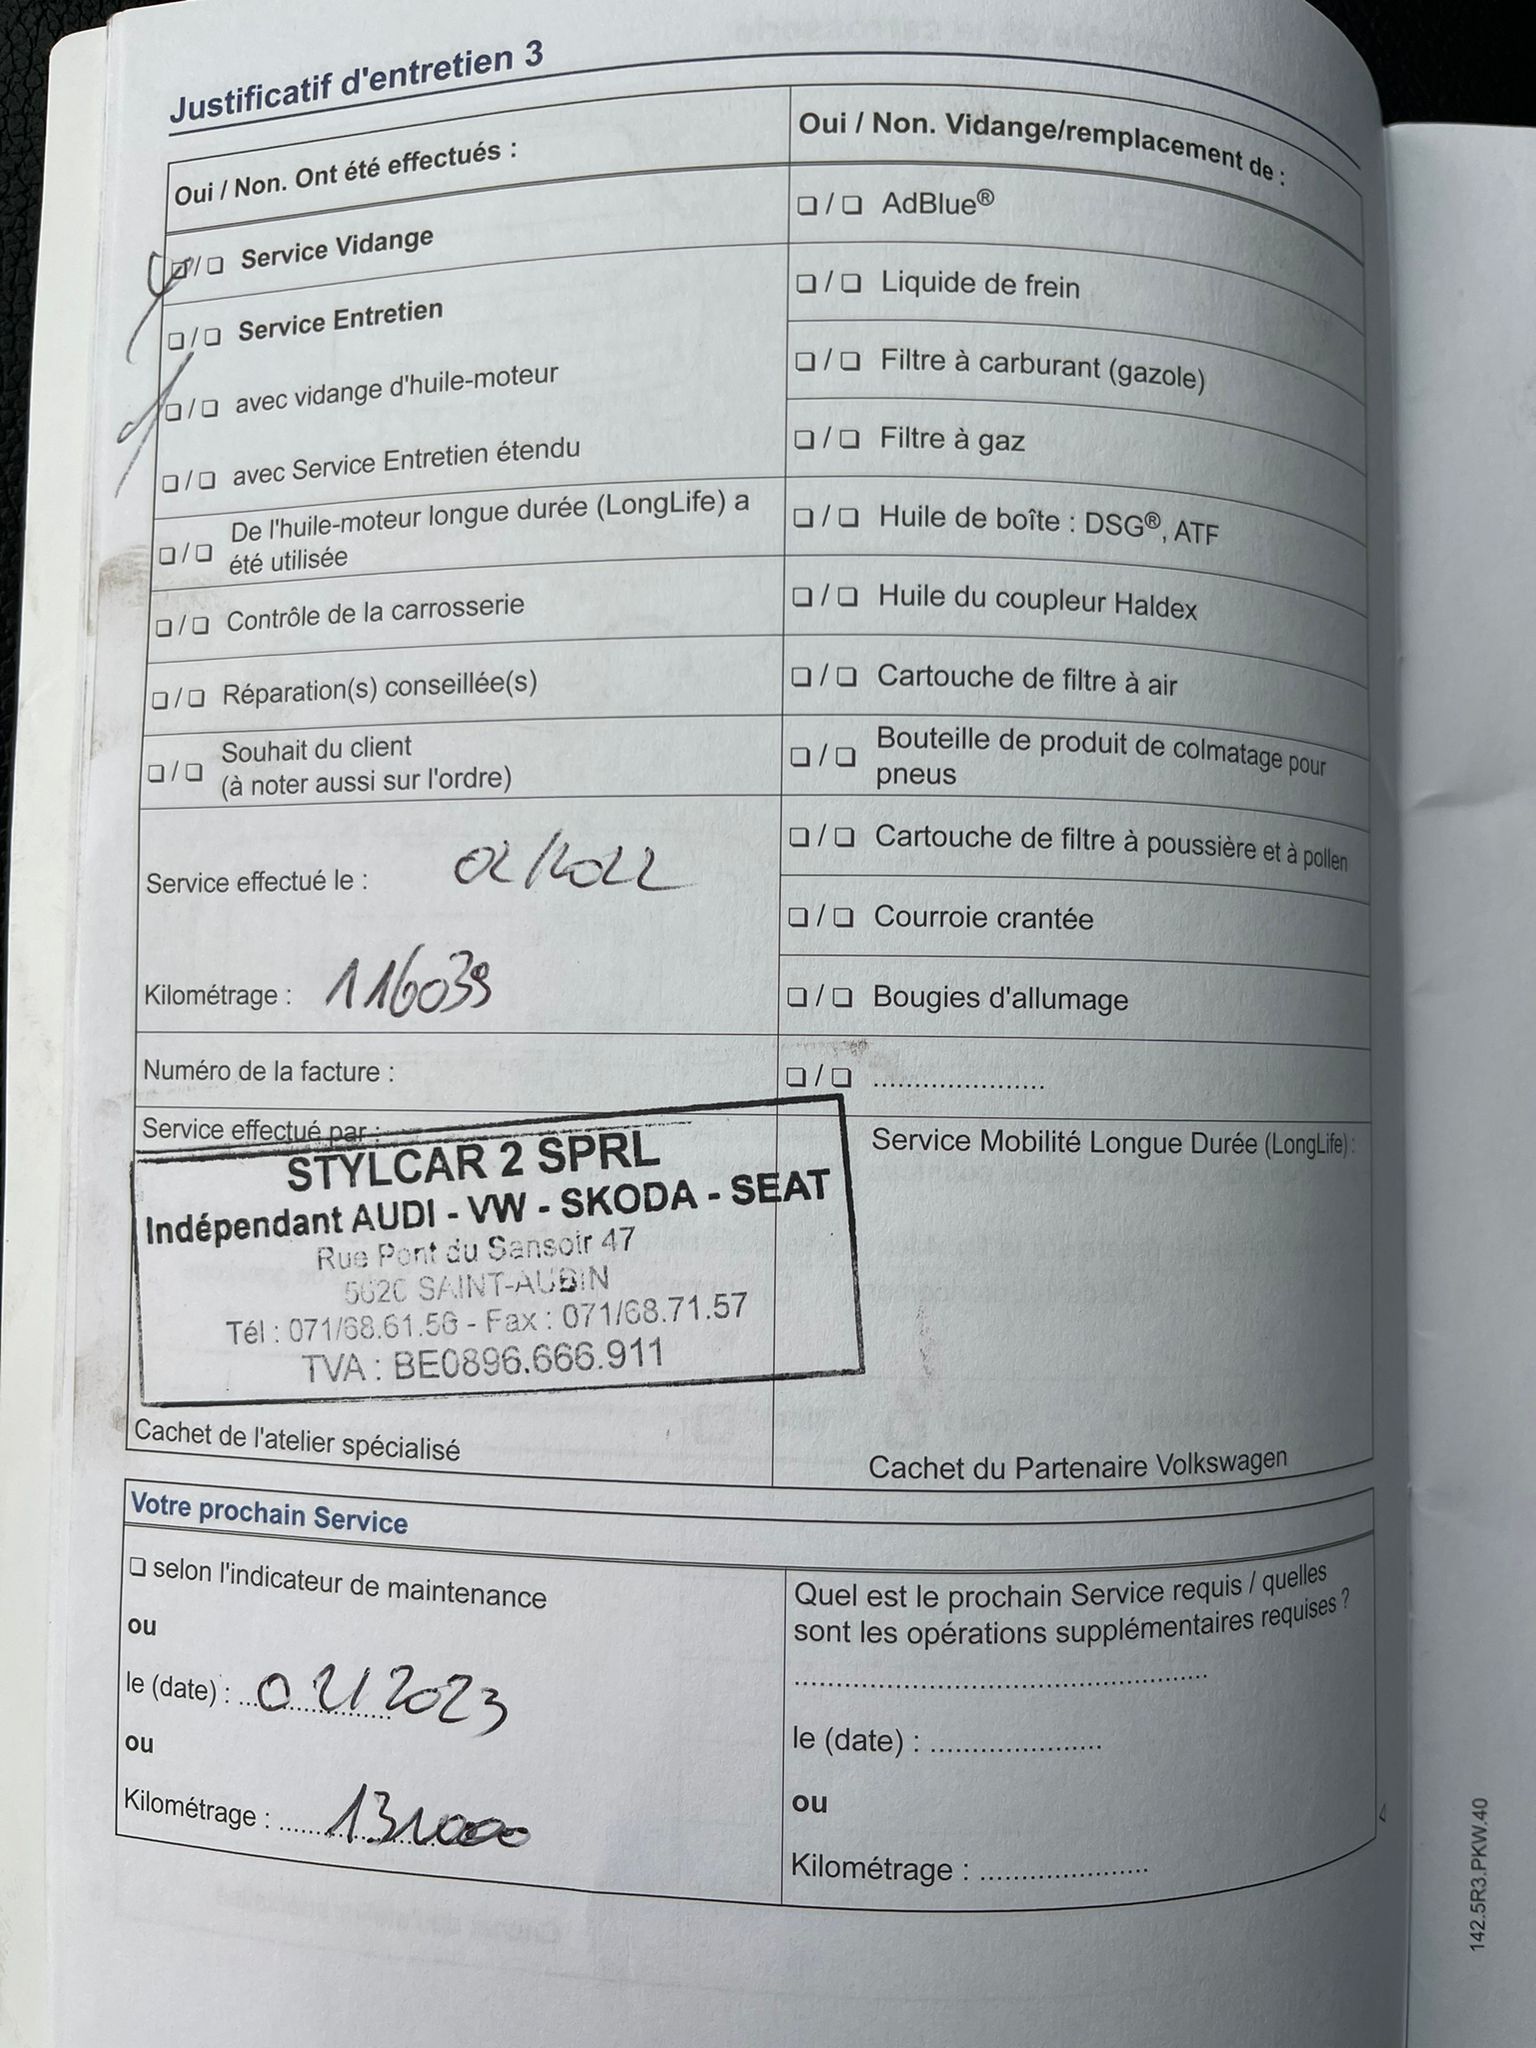 Justificatif d'entretien 3
Oui / Non. Ont été effectués :
❏/❏ Service Vidange
❏/❏ Service Entretien
❏/❏ avec vidange d'huile-moteur
❏/❏ avec Service Entretien étendu
❏/❏ De l'huile-moteur longue durée (LongLife) a
été utilisée
❏/❏ Contrôle de la carrosserie
❏/❏ Réparation(s) conseillée(s)
❏/❏ Souhait du client
(à noter aussi sur l'ordre)
Service effectué le : 02/2022
Kilométrage : 116039
Numéro de la facture :
Service effectué par :
STYLCAR 2 SPRL
Indépendant AUDI - VW - SKODA - SEAT
Rue Pont du Sansoir 47
5620 SAINT-AUBIN
Tél : 071/68.61.56 - Fax : 071/68.71.57
TVA : BE0896.666.911
Cachet de l'atelier spécialisé
Oui / Non. Vidange/remplacement de :
❏/❏ AdBlue®
❏/❏ Liquide de frein
❏/❏ Filtre à carburant (gazole)
❏/❏ Filtre à gaz
❏/❏ Huile de boîte : DSG®, ATF
❏/❏ Huile du coupleur Haldex
❏/❏ Cartouche de filtre à air
❏/❏ Bouteille de produit de colmatage pour
pneus
❏/❏ Cartouche de filtre à poussière et à pollen
❏/❏ Courroie crantée
❏/❏ Bougies d'allumage
❏/❏ .....................
Service Mobilité Longue Durée (LongLife) :
Cachet du Partenaire Volkswagen
Votre prochain Service
❏ selon l'indicateur de maintenance
ou
le (date) : 02/2023
ou
Kilométrage : 131000
Quel est le prochain Service requis / quelles
sont les opérations supplémentaires requises ?
..................................................
le (date) : .....................
ou
Kilométrage : .....................
142.5R3.PKW.40